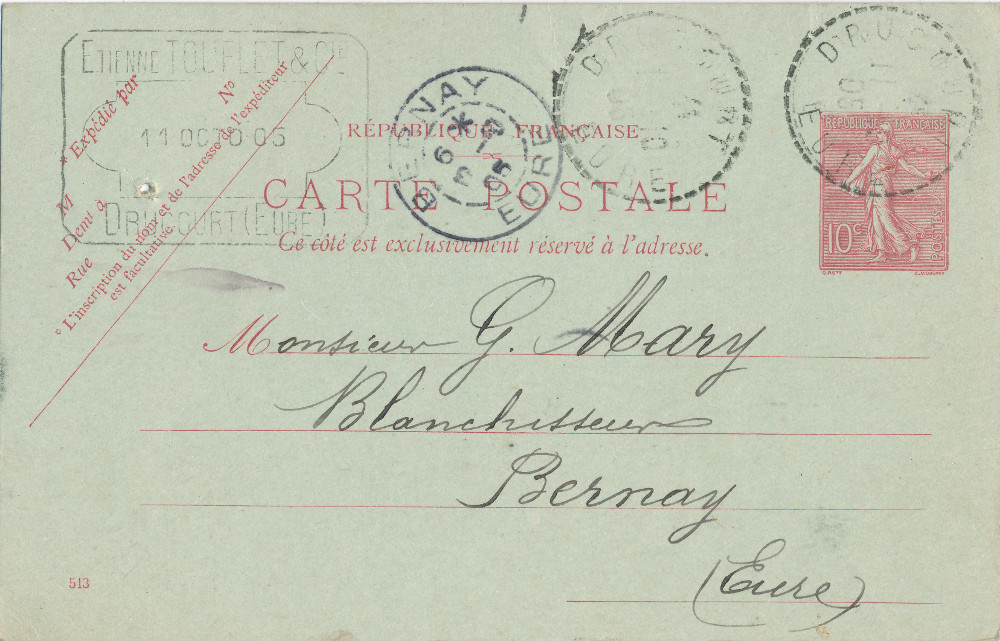 ETIENNE TOUFLET & CIE
11 OCT 05
DRUCOURT (EURE)
M * Expédié par
Demt à
Rue No
* L'inscription du nom et de l'adresse de l'expéditeur
est facultative.
BERNAY
EURE
05
DRUCOURT
EURE
DRUCOURT
EURE
RÉPUBLIQUE FRANÇAISE
CARTE POSTALE
Ce côté est exclusivement réservé à l'adresse.
RÉPUBLIQUE FRANÇAISE
10c
POSTES
Monsieur G. Mary
Blanchisseur
Bernay
(Eure)
513